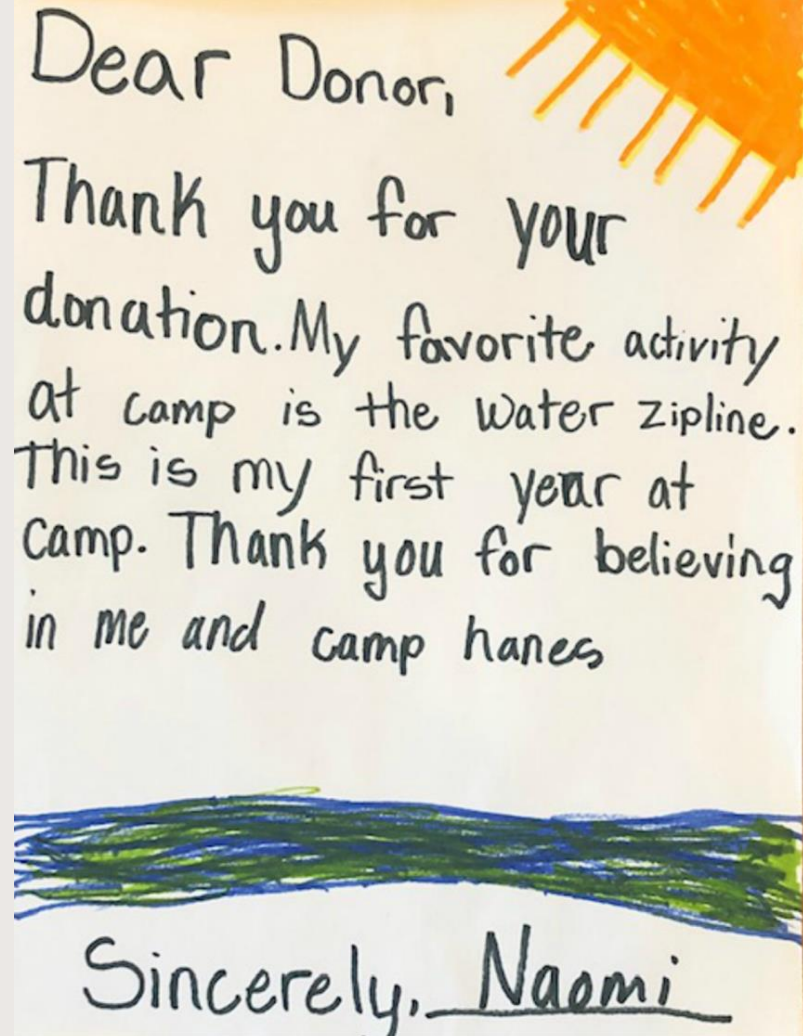 Dear Donor,
Thank you for your
donation. My favorite activity
at camp is the water zipline.
This is my first year at
camp. Thank you for believing
in me and camp hanes
Sincerely, Naomi